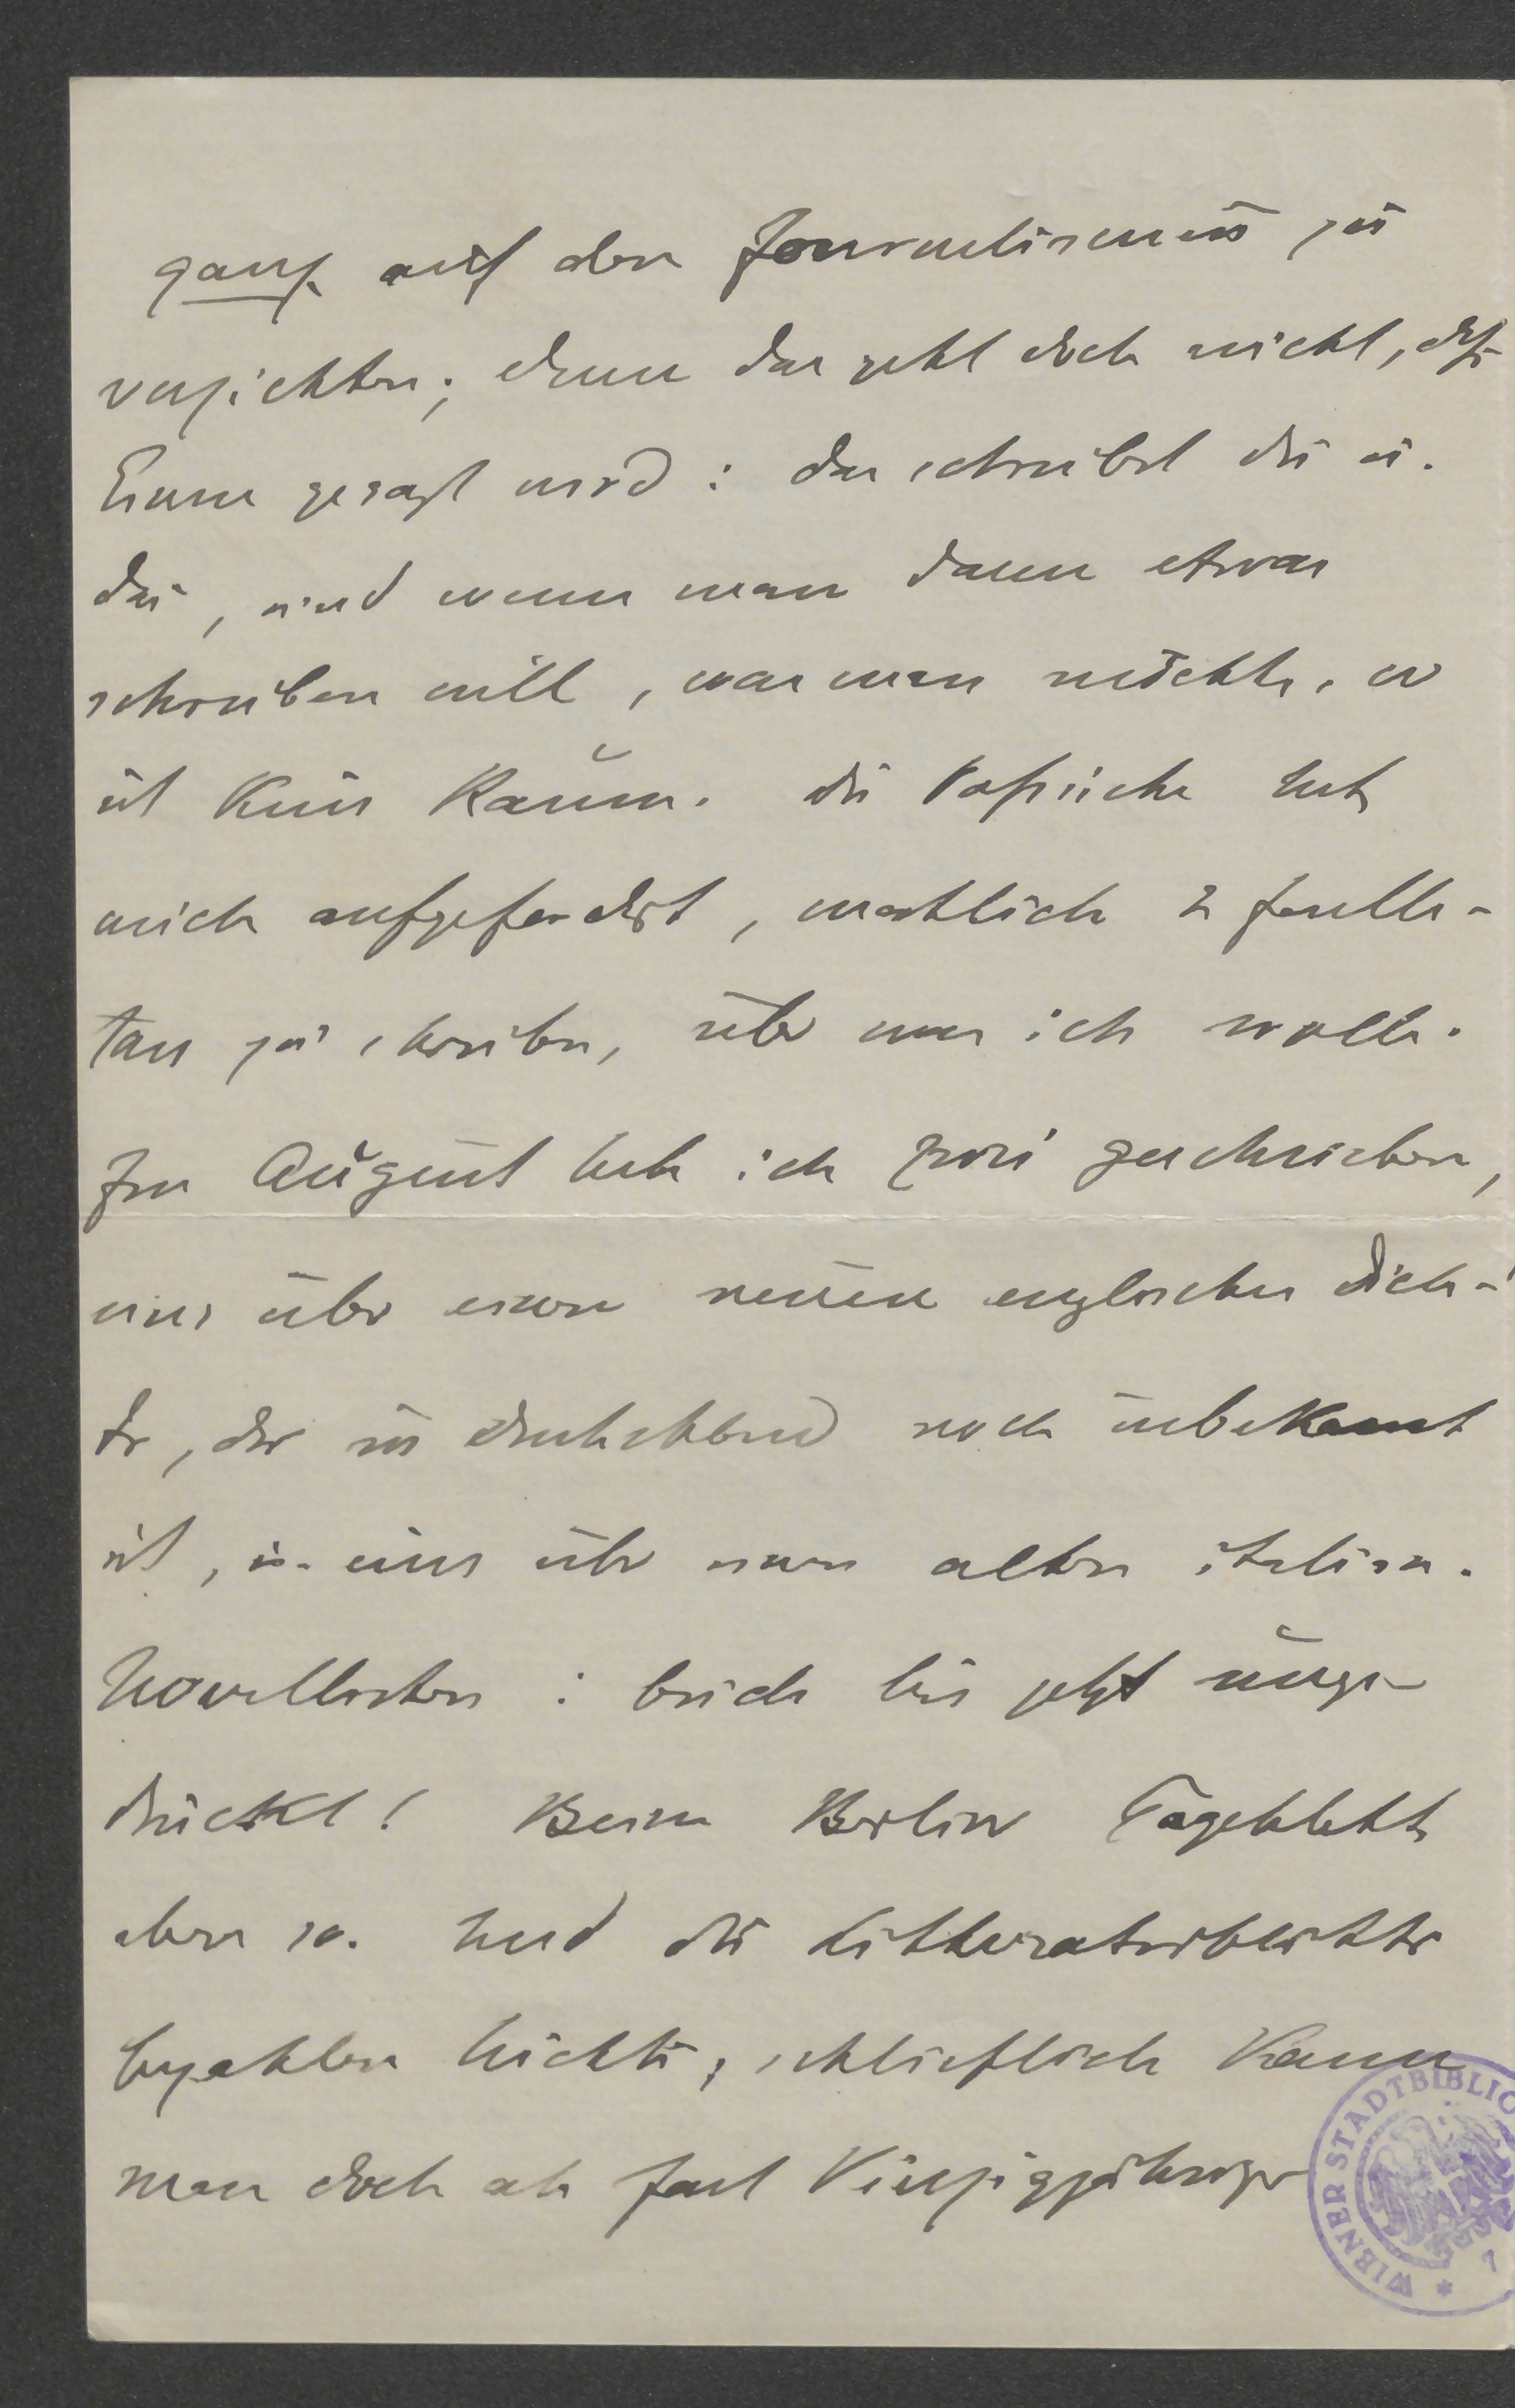 ganz auf den Journalismus zu
verzichten; denn das geht doch nicht, dß
Einem gesagt wird: das schreibst du u.
das, und wenn man dann etwas
schreiben will, was man möchte, so
ist kein Raum. Die Vossische hat
mich aufgefordert, monatlich 2 Feuille-
tons zu schreiben, über was ich wolle.
Im August habe ich zwei geschrieben,
eins über einen neuen englischen Dich-
ter, der in Deutschland noch unbekannt
ist, u. eins über einen alten italien.
Novellisten: beide bis jetzt unge-
druckt! Beim Berliner Tageblatt
eben so. Und die Litteraturblätter
bezahlen nichts; schließlich kann
man doch als fast Vierzigjähriger
WIENER STADTBIBLIO